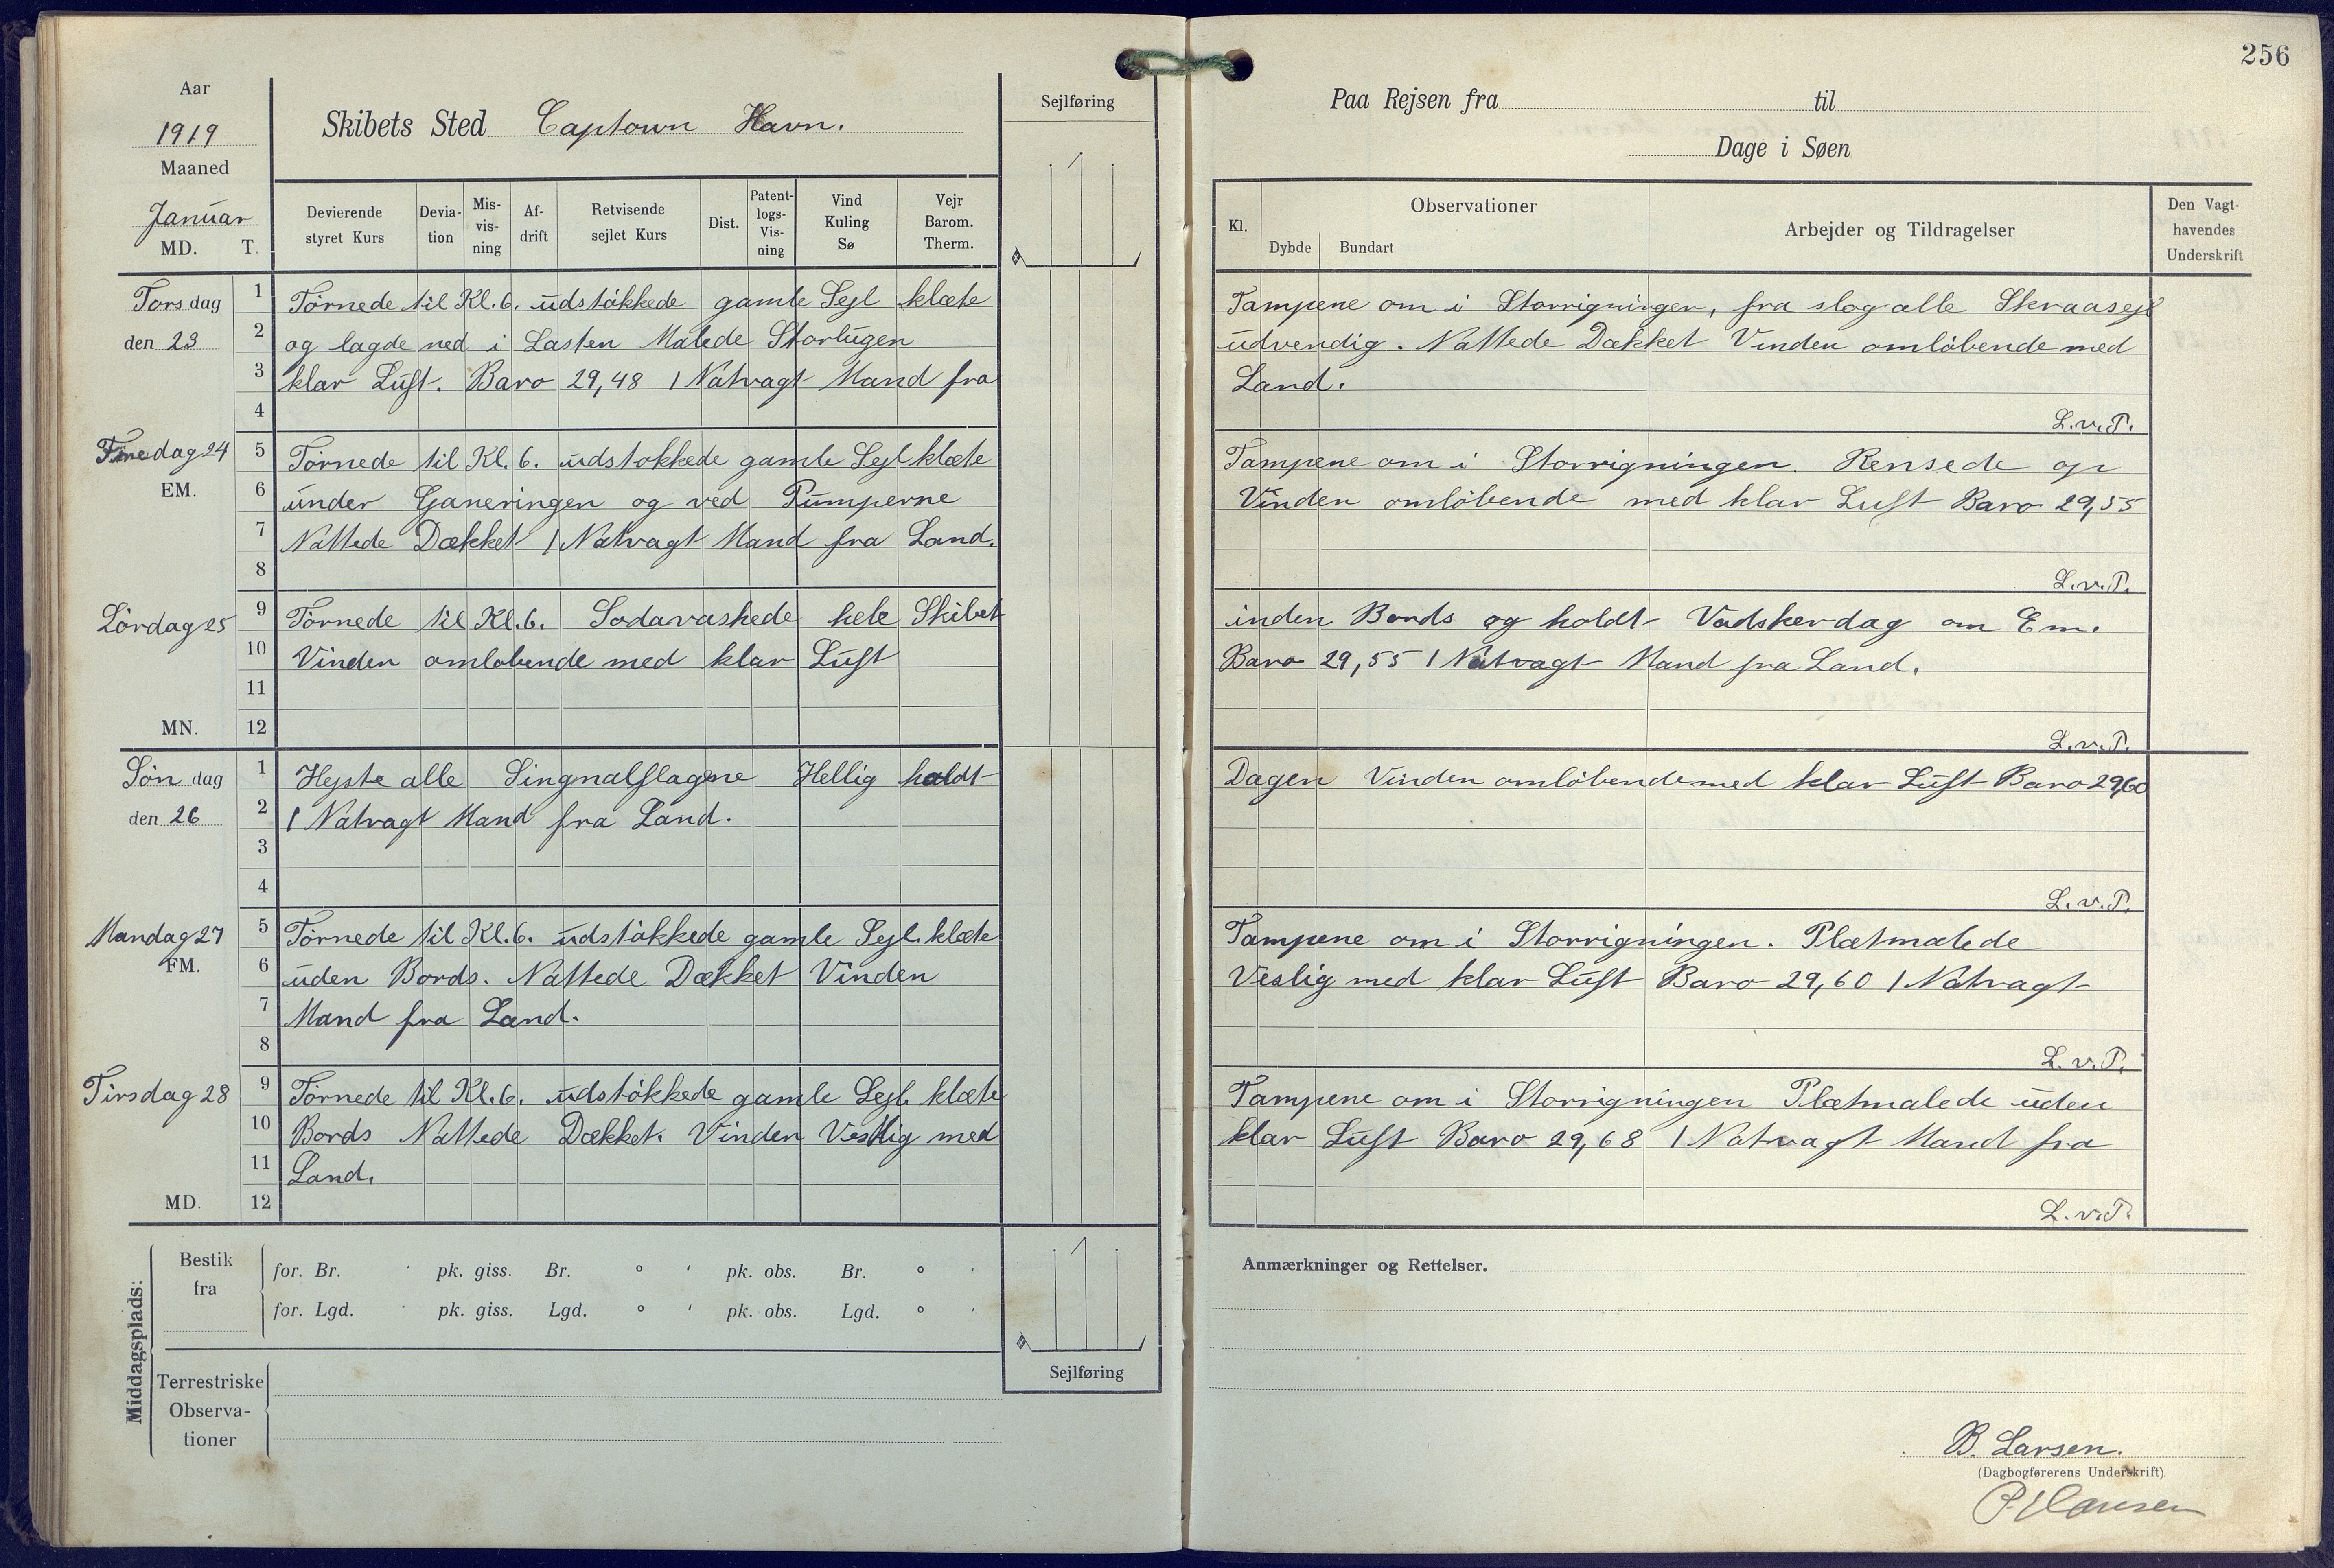 256
Aar
1919
Maaned
Januar
MD. T.
Skibets Sted Captown Havn.
Sejlføring
Devierende styret Kurs
Devia-tion
Mis-vis-ning
Af-drift
Retvisende sejlet Kurs
Dist.
Patent-logs-Vis-ning
Vind Kuling Sø
Vejr Barom. Therm.
Torsdag
den 23
1 Törnede til Kl. 6. udstökkede gamle Sejl klæte
2 og lagde ned i Lasten Malede Storlugen
3 klar Luft. Baro 29,48 1 Natvagt Mand fra
4
Fredag 24
EM.
5 Törnede til Kl. 6. udstokkede gamle Sejl klæte
6 under Ganeringen og ved Pumperne
7 Nattede Dækket 1 Natvagt Mand fra Land.
8
Lördag 25
9 Törnede til Kl. 6. Sodavaskede hele Skibet
10 Vinden omlobende med klar Luft
11
MN. 12
Søndag
den 26
1 Hejste alle Singnalflagene Hellig holdt
2 1 Natvagt Mand fra Land.
3
4
Mandag 27
FM.
5 Törnede til Kl. 6. udstökkede gamle Sejl klæte
6 uden Bords. Nattede Dækket Vinden
7 Mand fra Land.
8
Tirsdag 28
9 Törnede til Kl. 6. udstökkede gamle Sejl klæte
10 Bords Nattede Dækket. Vinden Vestlig med
11 Land.
MD. 12
Middagsplads:
Bestik fra
for. Br. ' pk. giss. Br. ° ' pk. obs. Br. ° '
for. Lgd. ' pk. giss. Lgd. ° ' pk. obs. Lgd. ° '
Terrestriske Observa-tioner
Sejlføring
Paa Rejsen fra til
Dage i Søen
Kl.
Observationer
Dybde Bundart
Arbejder og Tildragelser
Den Vagt-havendes Underskrift
Tampene om i Storrigningen, fra slog alle Skraasejl
udvendig. Nattede Dækket Vinden omlöbende med
Land.
L.v.P.
Tampene om i Storrigningen. Rensede op
Vinden omlöbende med klar Luft Baro 29,55
L.v.P.
inden Bords og holdt Vadskerdag om Em.
Baro 29,55 1 Natvagt Mand fra Land.
L.v.P.
Dagen Vinden omlöbende med klar Luft Baro 29,60
L.v.P.
Tampene om i Storrigningen. Plætmalede
Veslig med klar Luft Baro 29,60 1 Natvagt
L.v.P.
Tampene om i Storrigningen Plætmalede uden
klar Luft Baro 29,68 1 Natvagt Mand fra
L.v.P.
Anmærkninger og Rettelser.
B. Larsen.
(Dagbogførerens Underskrift).
P. Hansen